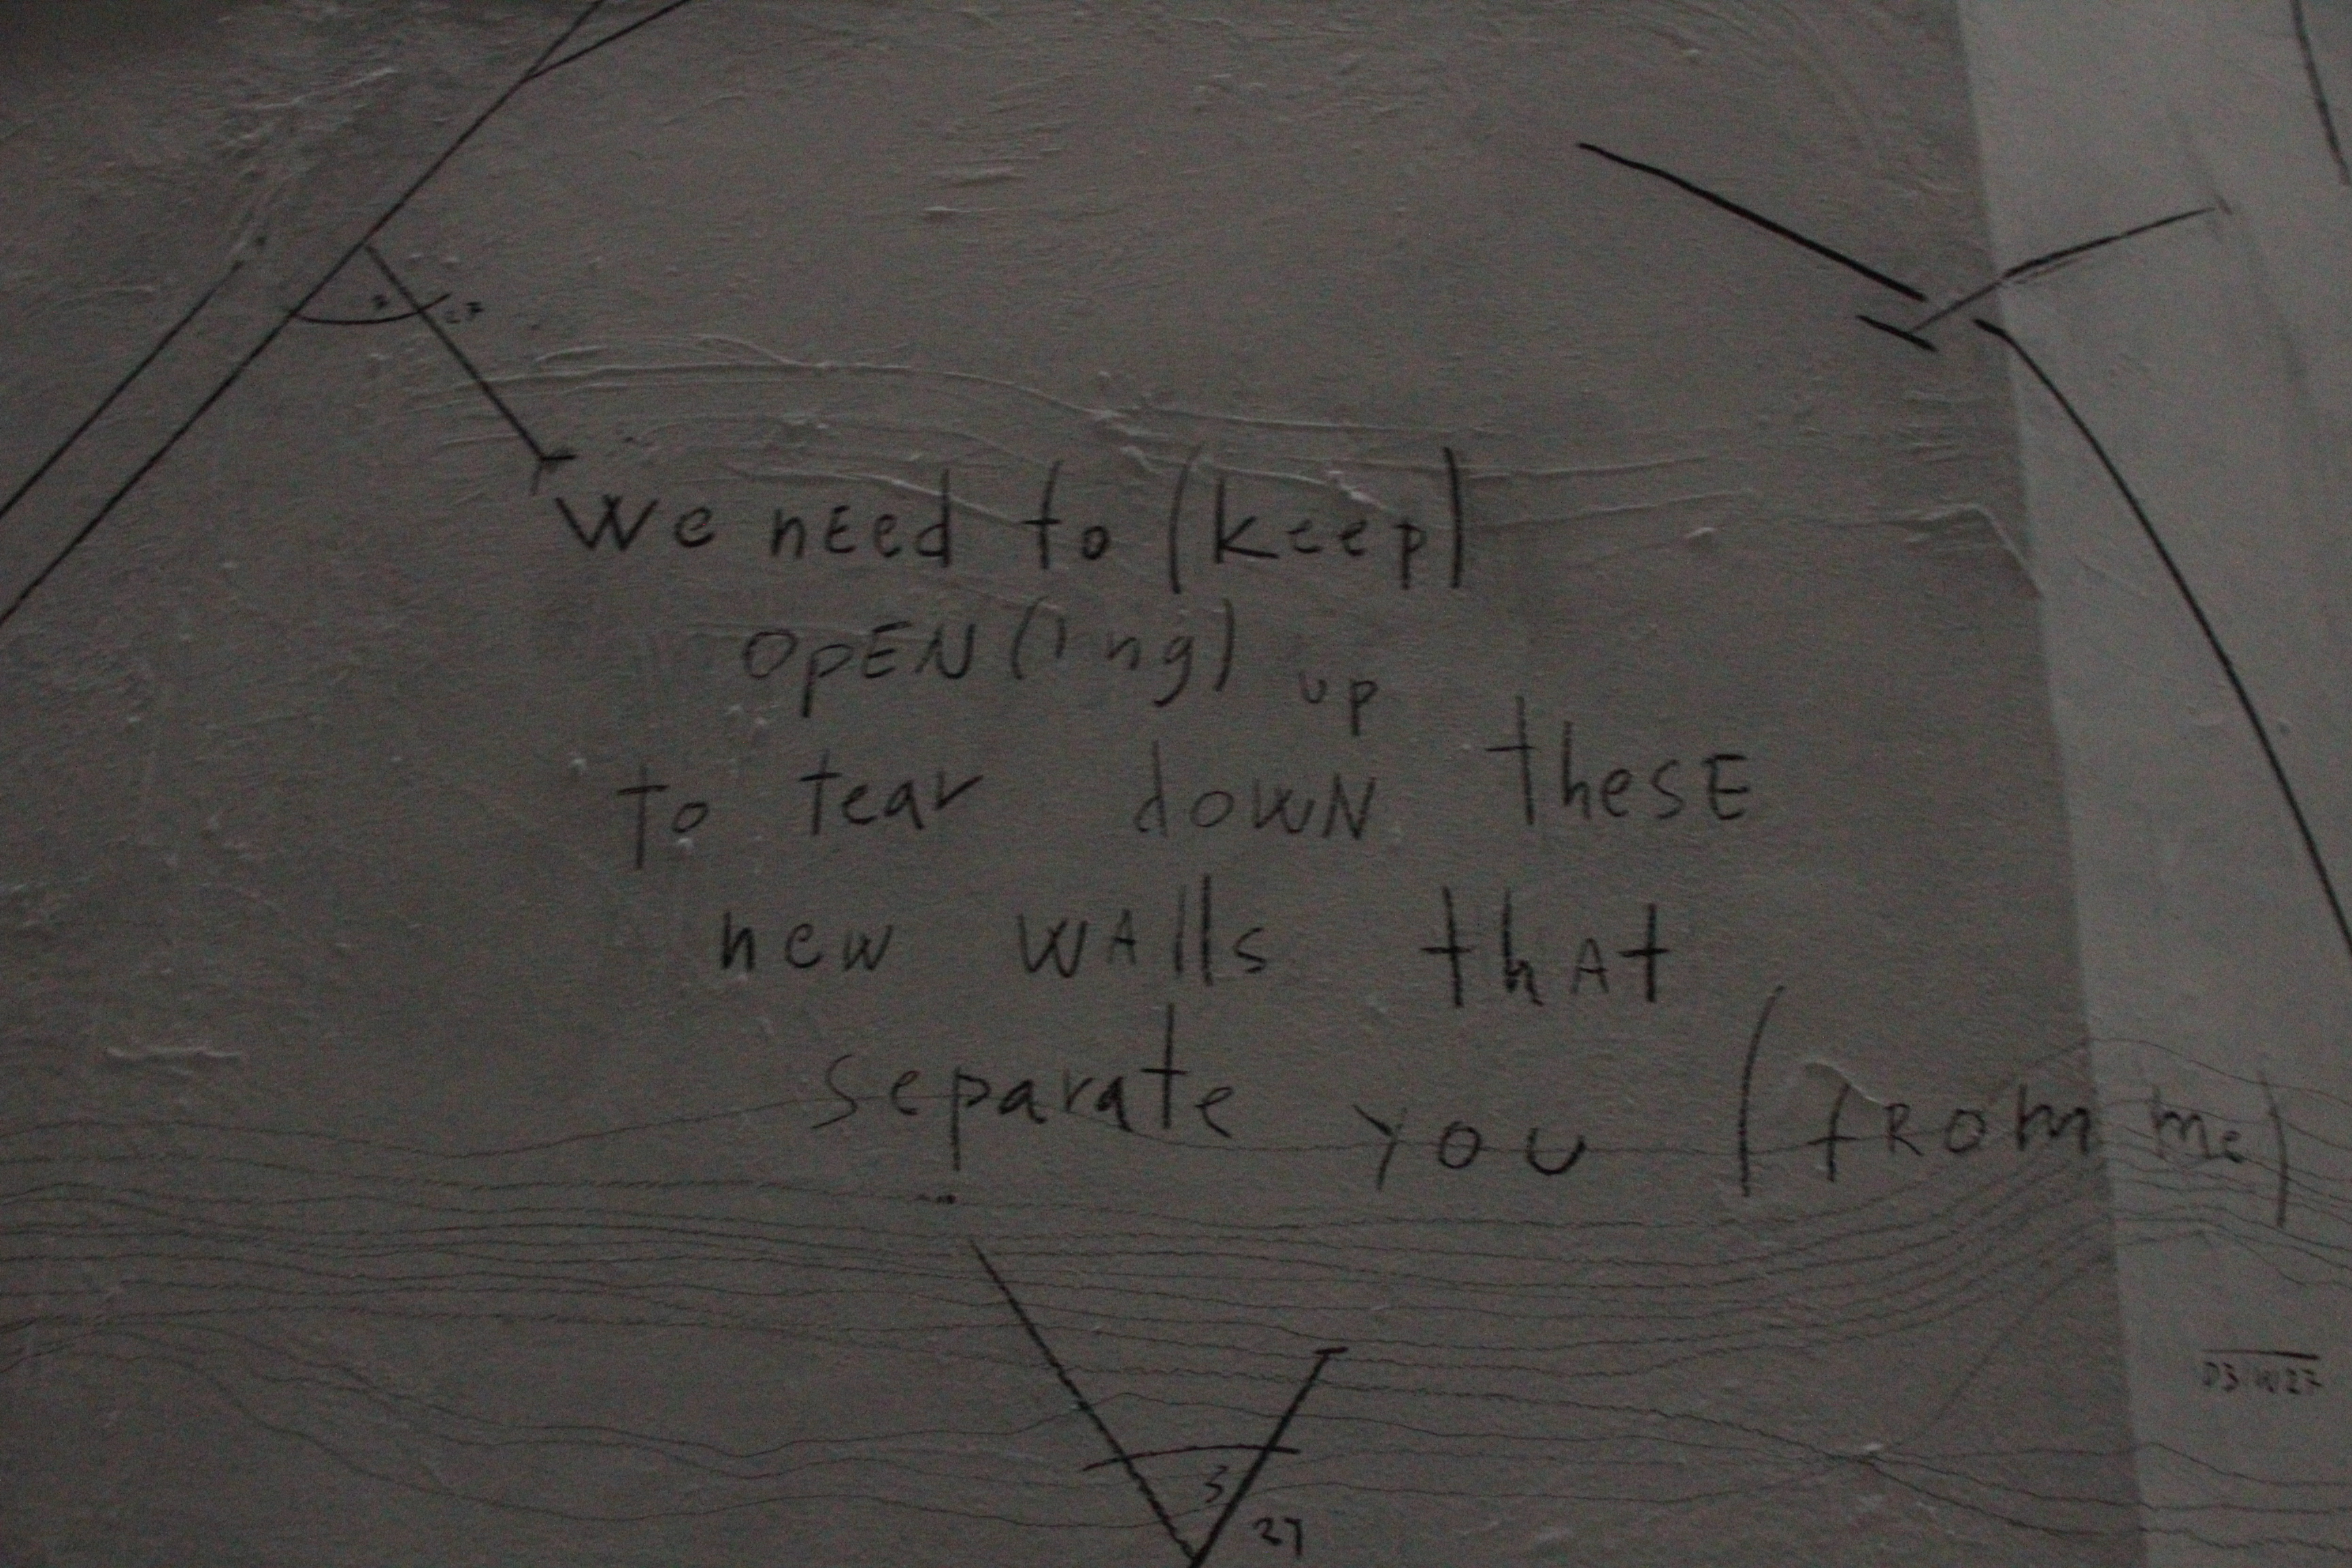 we nEEd to (keep)
OpEN(ing) up
to tear dowN thesE
new wAlls thAt
separate you (fROm me)
3
27